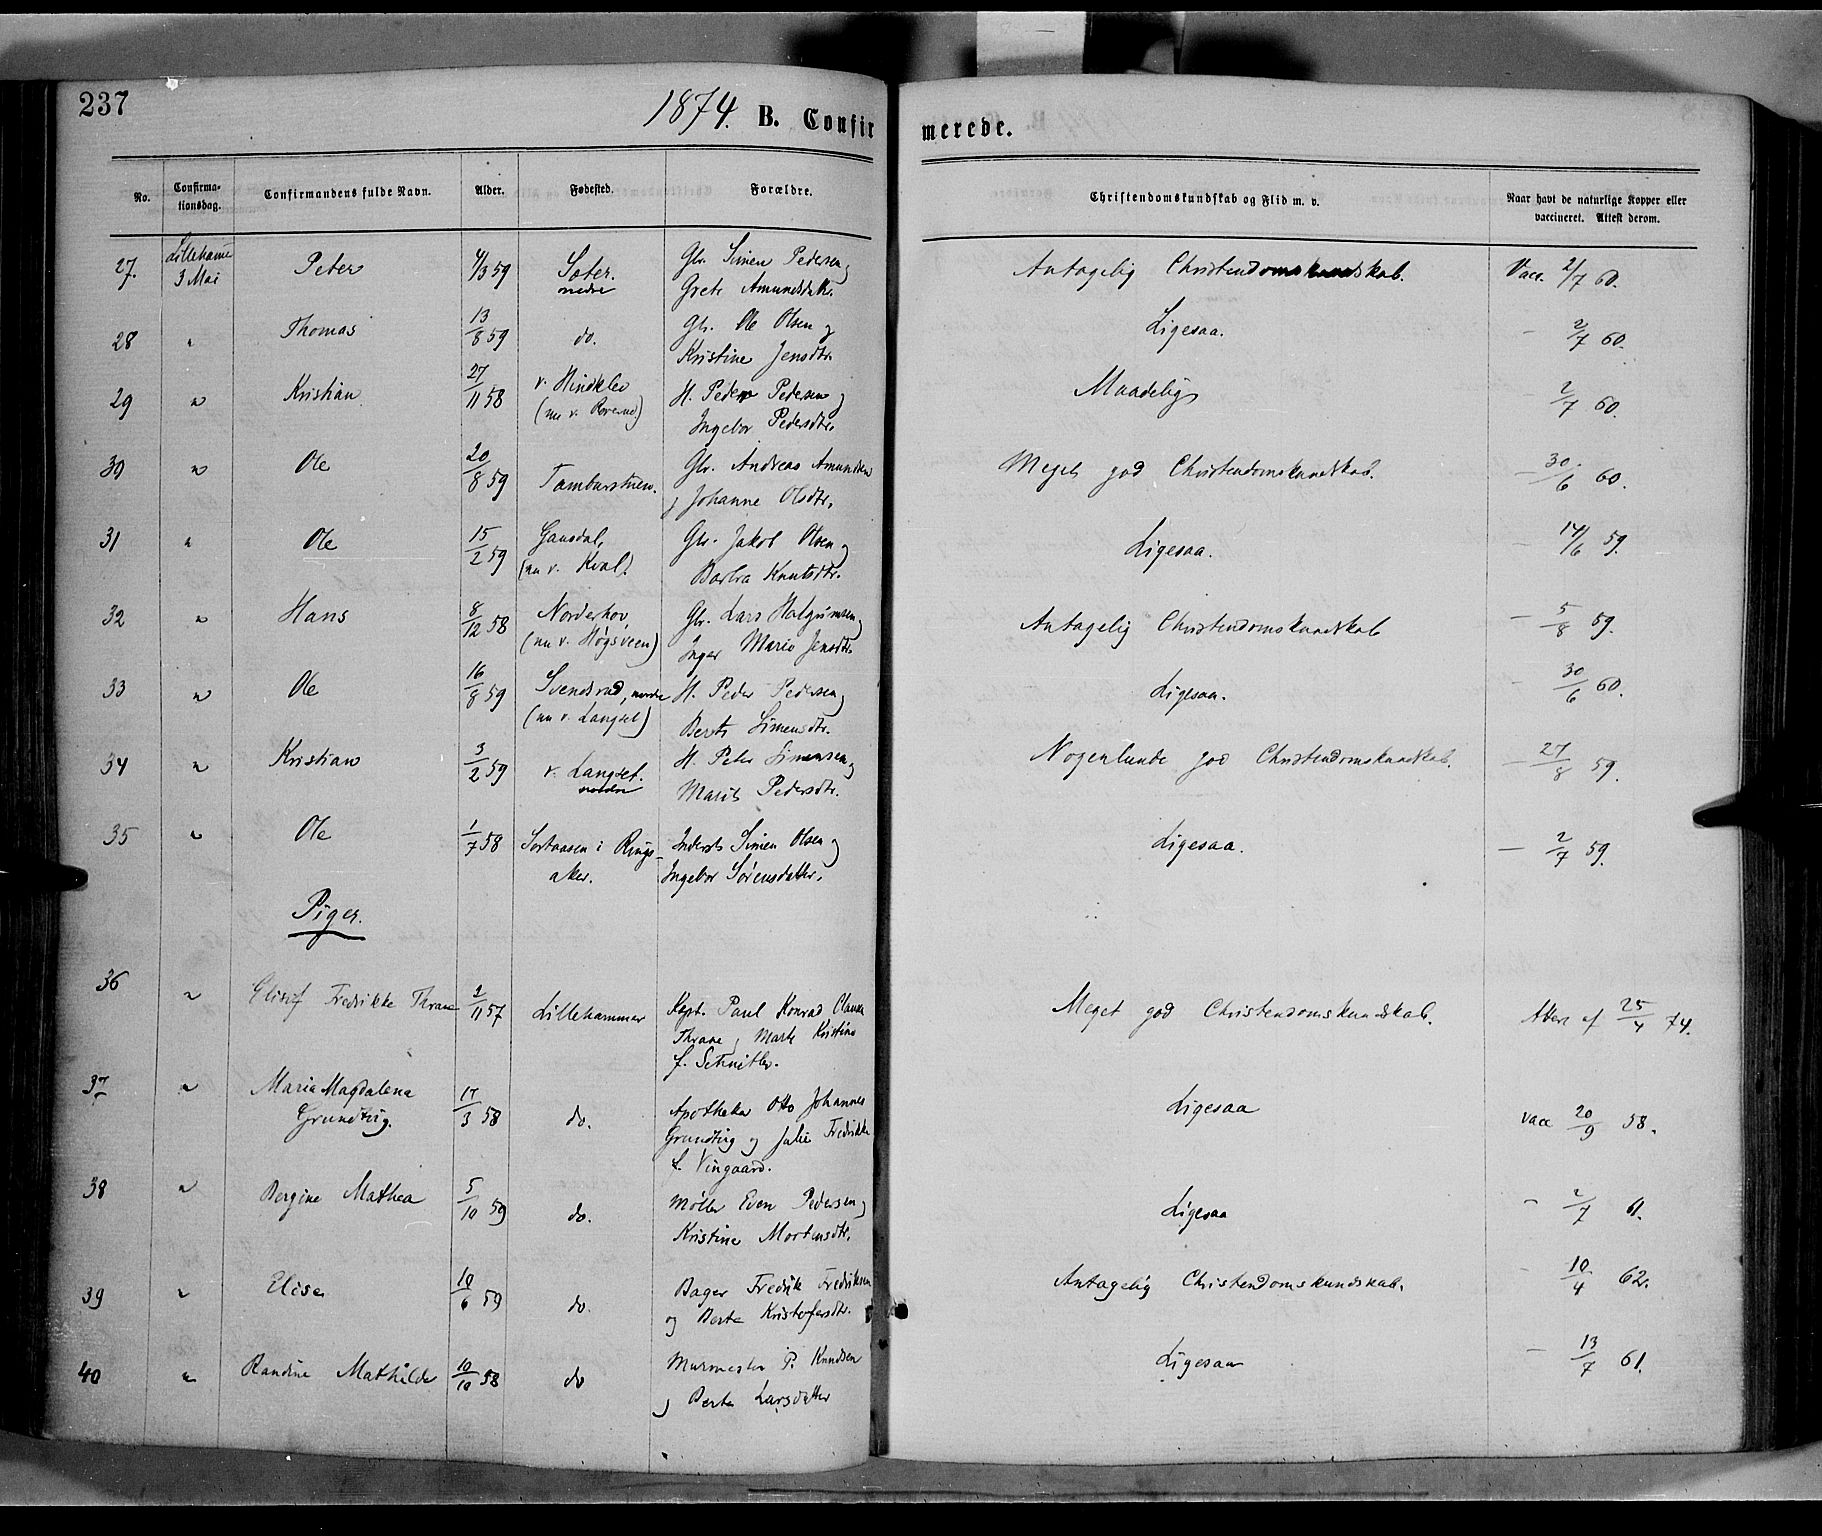 237
1874. B. Confirmerede.
No. Confirmationsdag. Confirmandens fulde Navn. Alder. Fødested. Forældre. Christendomskundskab og Flid m. v. Naar havt de naturlige Kopper eller vaccineret. Attest derom.
27. Lillehamr 3 Mai Peter 4/3 59 Sæter nedre Gbr. Simen Pedersen og Grete Amundsdatr. Antagelig Christendomskundskab. Vacc. 2/7 60.
28 " Thomas 13/8 59 do. Gbr. Ole Olsen og Kristine Jensdtr. Ligesaa. – 2/7 60.
29 " Kristian 27/11 58 v. Hindklev (nu v. Roverud) H. Peder Pedersen og Ingebor Pedersdtr. Maadelig – 2/7 60.
30 " Ole 20/8 59 Tamburstuen. Gbr. Andreas Amundsen og Johanne Olsdtr. Meget god Christendomskundskab. – 30/6 60.
31 " Ole 15/2 59 Gausdal, (nu v. Kval). Gbr. Jakob Olsen og Barbra Knutsdtr. Ligesaa. – 14/6 59.
32 " Hans 8/12 58 Norderhov, (nu v. Høgsveen) Gbr. Lars Halgrimsen, Inger Marie Jensdtr. Antagelig Christendomskundskab – 5/8 59.
33 " Ole 16/8 59 Svendsrud, nordre (nu v. Langset) H. Peder Pedersen og Berte Simensdtr. Ligesaa. – 30/6 60.
34 " Kristian 3/2 59 v. Langset. nordre H. Peter Simensen og Marit Pedersdtr. Nogenlunde god Christendomskundskab. – 27/8 59.
35 " Ole 1/7 58 Sortaasen i Ringsaker. Inderst Simen Olsen og Ingebor Sørensdatter. Ligesaa. – 2/7 59.
Piger.
36 " Fredrikke Thrane 2/11 57 Lillehammer Kapt. Paul Konrad Clausen Thrane, Marte Kristine f. Schnitler. Meget god Christendomskundskab. Attest af 25/4 74.
37 " Maria Magdalena Grundtvig. 17/3 58 do. Apotheker Otto Johannes Grundtvig og Julie Fredrikke f. Vingaard. Ligesaa vacc 20/9 58.
38 " Bergine Mathea 5/10 59 do. Møller Even Pedersen og Kristine Mortensdtr. Ligesaa – 2/7 61.
39 " Elise 10/6 59 do. Bager Fredrik Fredriksen og Berte Kristofersdtr. Antagelig Christendomskundskab. – 10/4 62.
40 " Randine Mathilde 10/10 58 do Murmester P. Knudsen og Berte Larsdatter Ligesaa – 13/7 61.